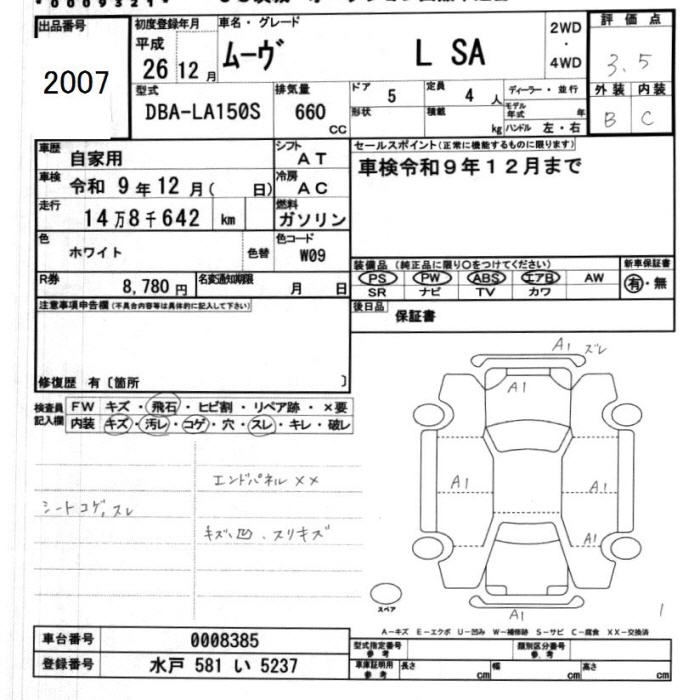 出品番号
2007
初度登録年月
平成
26 12 月
車名・グレード
ムーヴ L SA
2WD
・
4WD
評価点
3.5
外装 内装
B C
型式
DBA-LA150S
排気量
660
CC
ドア
5
定員
4 人
形状
積載
kg
ディーラー・並行
モデル年式 年
ハンドル 左・右
車歴
自家用
シフト
AT
車検
令和 9 年 12 月( 日)
冷房
AC
走行
14 万 8 千 642 km
燃料
ガソリン
色
ホワイト
色替
色コード
W09
R券
8,780 円
名変通知期限
月 日
セールスポイント(正常に機能するものに限ります)
車検令和9年12月まで
装備品 (純正品に限り○をつけてください)
PS PW ABS エアB AW
SR ナビ TV カワ
新車保証書
有・無
後日品
保証書
注意事項申告欄(不具合内容等は具体的に記入して下さい)
修復歴 有〔箇所 〕
検査員記入欄
FW キズ・飛石・ヒビ割・リペア跡・×要
内装 キズ・汚レ・コゲ・穴・スレ・キレ・破レ
エンドパネル××
シートコゲ,スレ
キズ、凹、スリキズ
A1 ズレ
A1
A1
A1
A1
A1
スペア
1
A-キズ E-エクボ U-凹み W-補修跡 S-サビ C-腐食 XX-交換済
車台番号
0008385
登録番号
水戸 581 い 5237
型式指定番号
参考
類別区分番号
参考
車庫証明用
参考
長さ cm
幅 cm
高さ cm